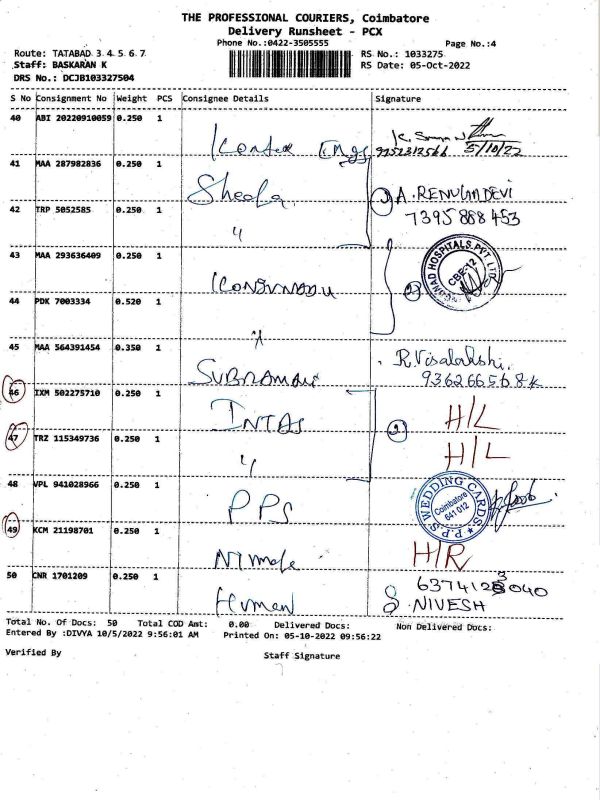 THE PROFESSIONAL COURIERS, Coimbatore
Delivery Runsheet - PCX
Phone No.:0422-3505555
Page No.:4
Route: TATABAD 3 4 5 6 7
RS No.: 1033275
Staff: BASKARAN K
RS Date: 05-Oct-2022
DRS No.: DCJB103327504
S No Consignment No Weight PCS Consignee Details Signature
40 ABI 20220910059 0.250 1
9952312566 5/10/22
41 MAA 287982836 0.250 1 Sheela
① A. RENUGADEVI
7395888453
42 TRP 5052585 0.250 1 "
43 MAA 293636409 0.250 1
HOSPITALS.PVT LTD
CBE-12
②
44 PDK 7003334 0.520 1 "
45 MAA 564391454 0.350 1 SUBRAMANI
R. Visalakshi
46 IXM 502275710 0.250 1 INTAS H/L
②
47 TRZ 115349736 0.250 1 " H/L
48 VPL 941028966 0.250 1 PPS
P.P.S. WEDDING CARDS
Coimbatore
641 012
49 KCM 21198701 0.250 1 Nirmala H/R
50 CNR 1701209 0.250 1 Human
S. NIVESH
Total No. Of Docs: 50 Total COD Amt: 0.00 Delivered Docs: Non Delivered Docs:
Entered By :DIVYA 10/5/2022 9:56:01 AM Printed On: 05-10-2022 09:56:22
Verified By
Staff Signature